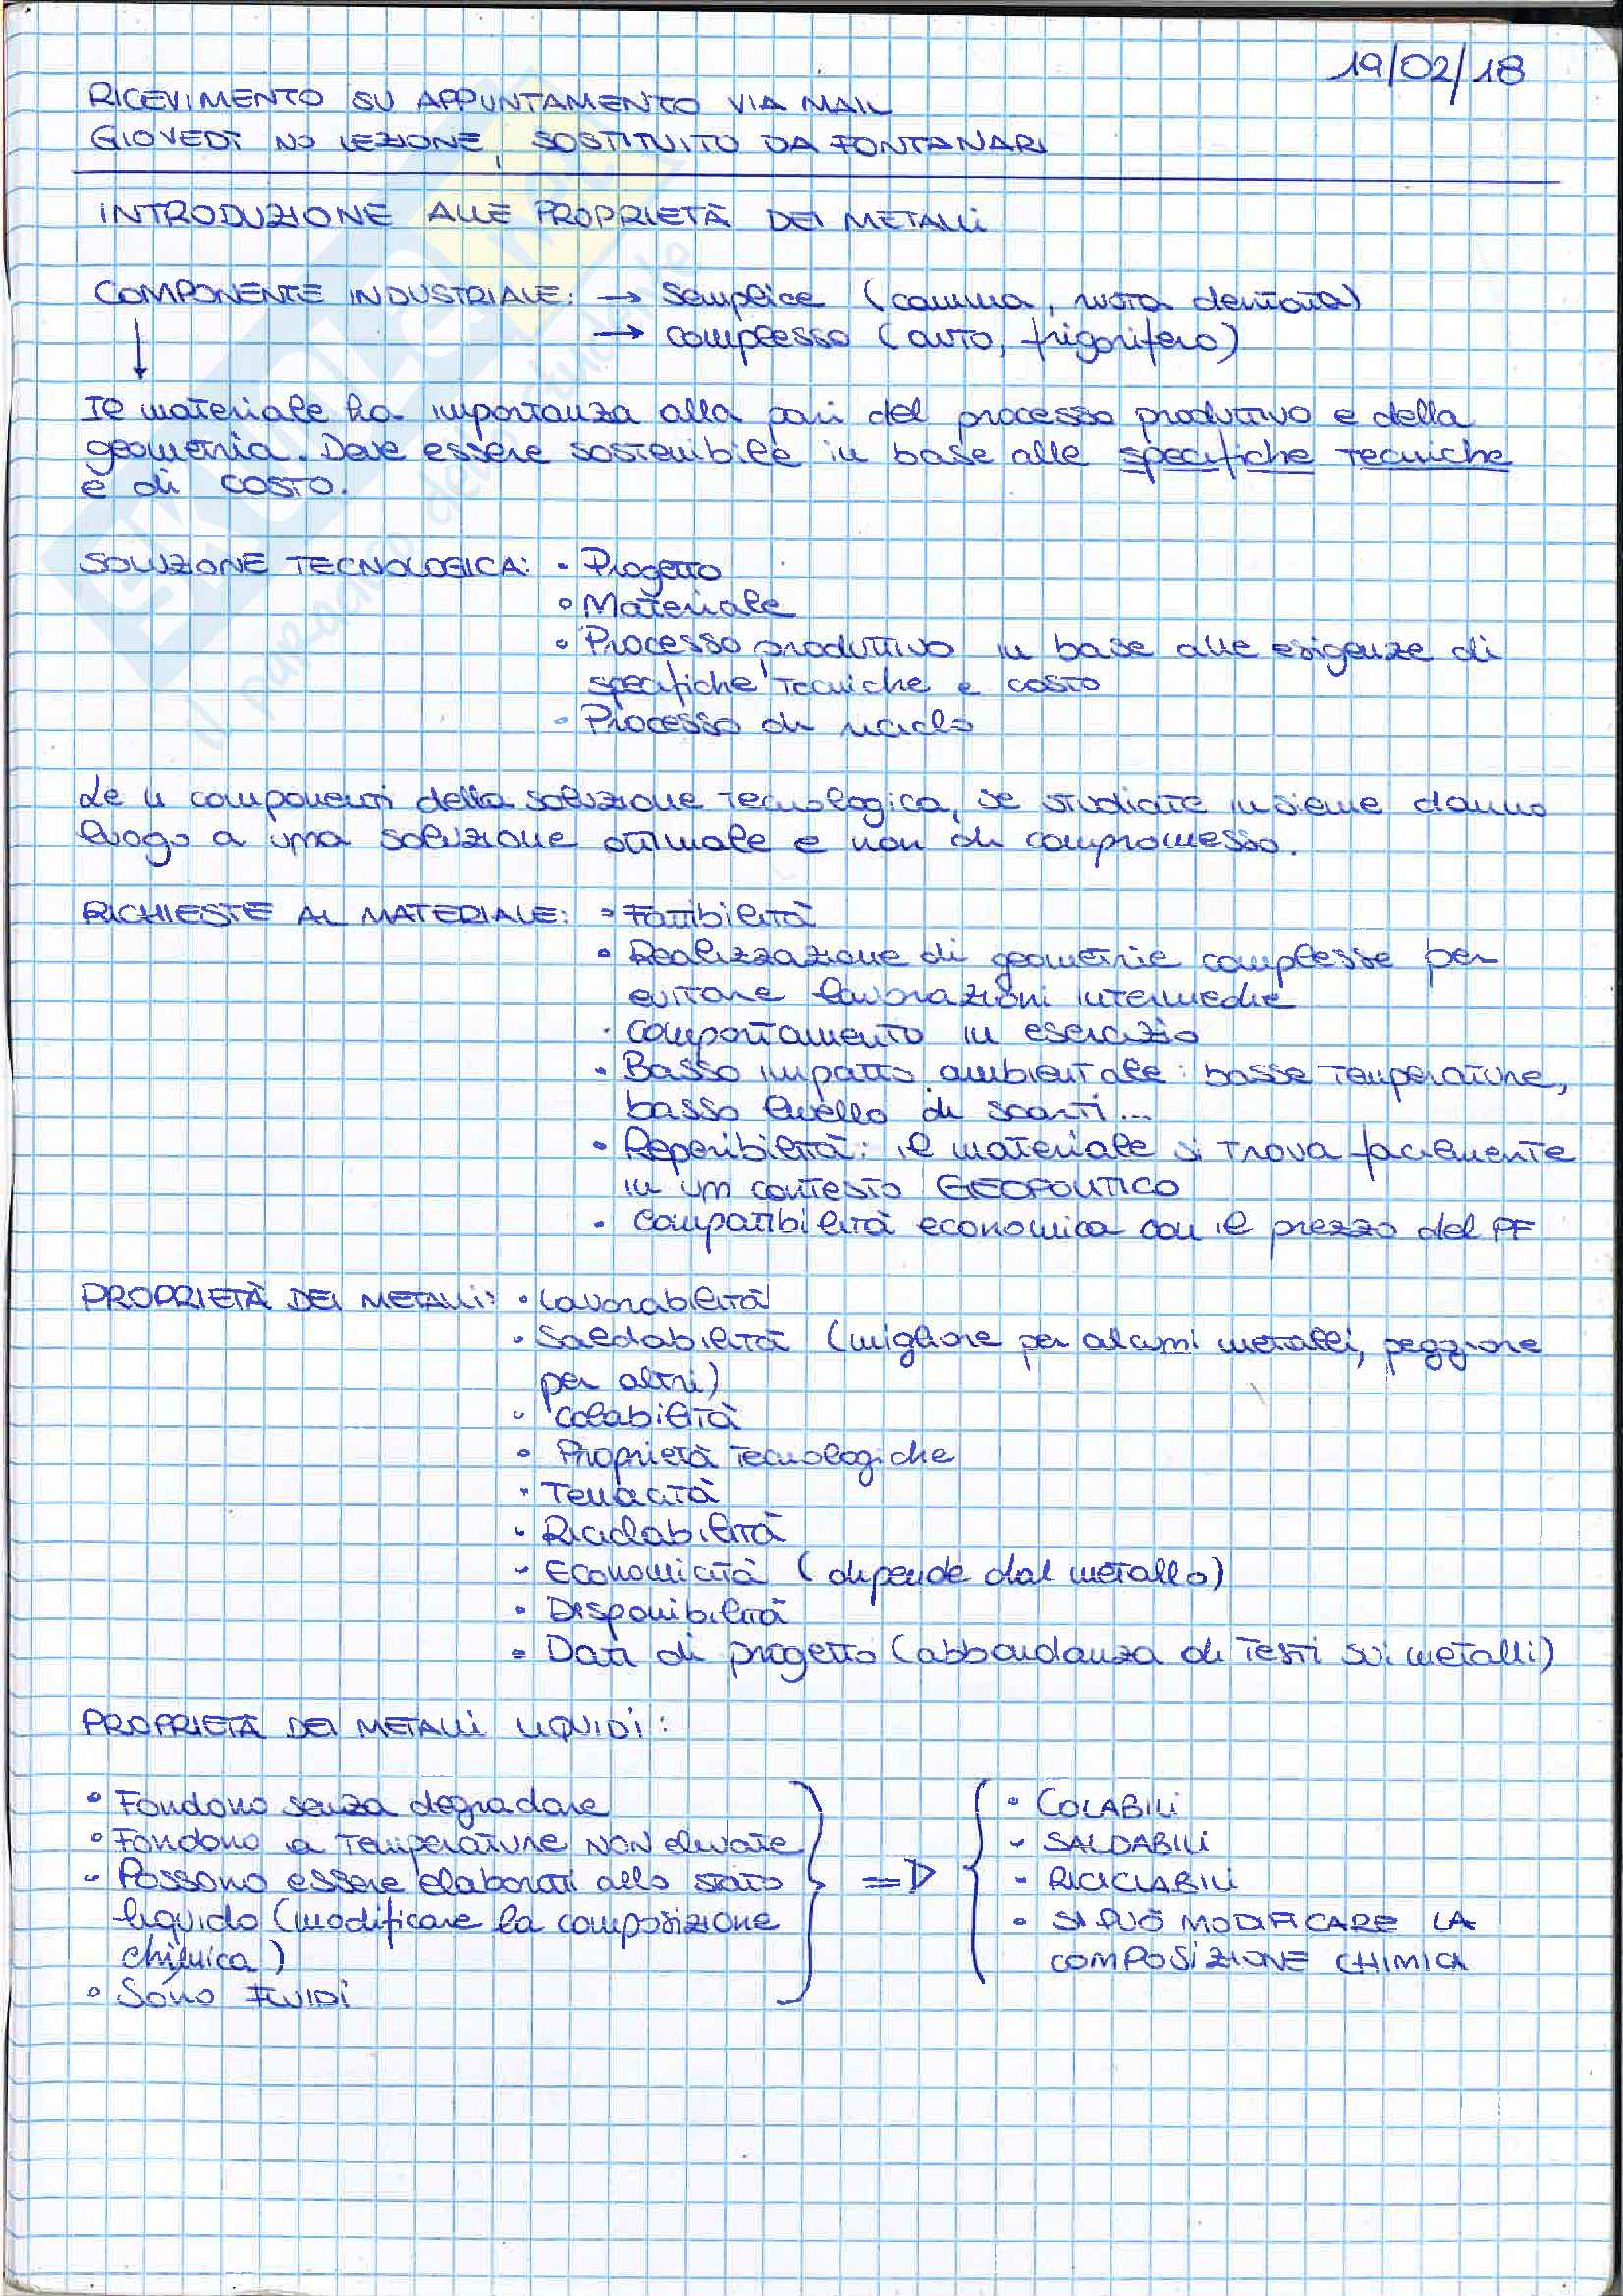 19/02/18
RICEVIMENTO SU APPUNTAMENTO VIA MAIL
GIOVEDÌ NO LEZIONE, SOSTITUITO DA FONTANARI
INTRODUZIONE ALLE PROPRIETÀ DEI METALLI
COMPONENTE INDUSTRIALE: → Semplice (camma, ruota dentata)
→ complesso (auto, frigorifero)
Il materiale ha importanza alla pari del processo produttivo e della
geometria. Deve essere sostenibile in base alle specifiche tecniche
e di costo.
SOLUZIONE TECNOLOGICA: • Progetto
• Materiale
• Processo produttivo in base alle esigenze di
specifiche tecniche e costo
• Processo di riciclo
Le 4 componenti della soluzione tecnologica, se studiate insieme danno
luogo a una soluzione ottimale e non di compromesso.
RICHIESTE AL MATERIALE: • Fattibilità
• Realizzazione di geometrie complesse per
evitare lavorazioni intermedie
• Comportamento in esercizio
• Basso impatto ambientale: basse temperature,
basso livello di scarti...
• Reperibilità: il materiale si trova facilmente
in un contesto GEOPOLITICO
• Compatibilità economica con il prezzo del PF
PROPRIETÀ DEI METALLI: • Lavorabilità
• Saldabilità (migliore per alcuni metalli, peggiore
per altri)
• Colabilità
• Proprietà tecnologiche
• Tenacità
• Riciclabilità
• Economicità (dipende dal metallo)
• Disponibilità
• Dati di progetto (abbondanza di testi sui metalli)
PROPRIETÀ DEI METALLI LIQUIDI:
• Fondono senza degradare
• Fondono a temperature NON elevate
• Possono essere elaborati allo stato
liquido (modificare la composizione
chimica)
• Sono FLUIDI
=>
• COLABILI
• SALDABILI
• RICICLABILI
• SI PUÒ MODIFICARE LA
COMPOSIZIONE CHIMICA
SKUOLA.NET
il paradiso dello studente